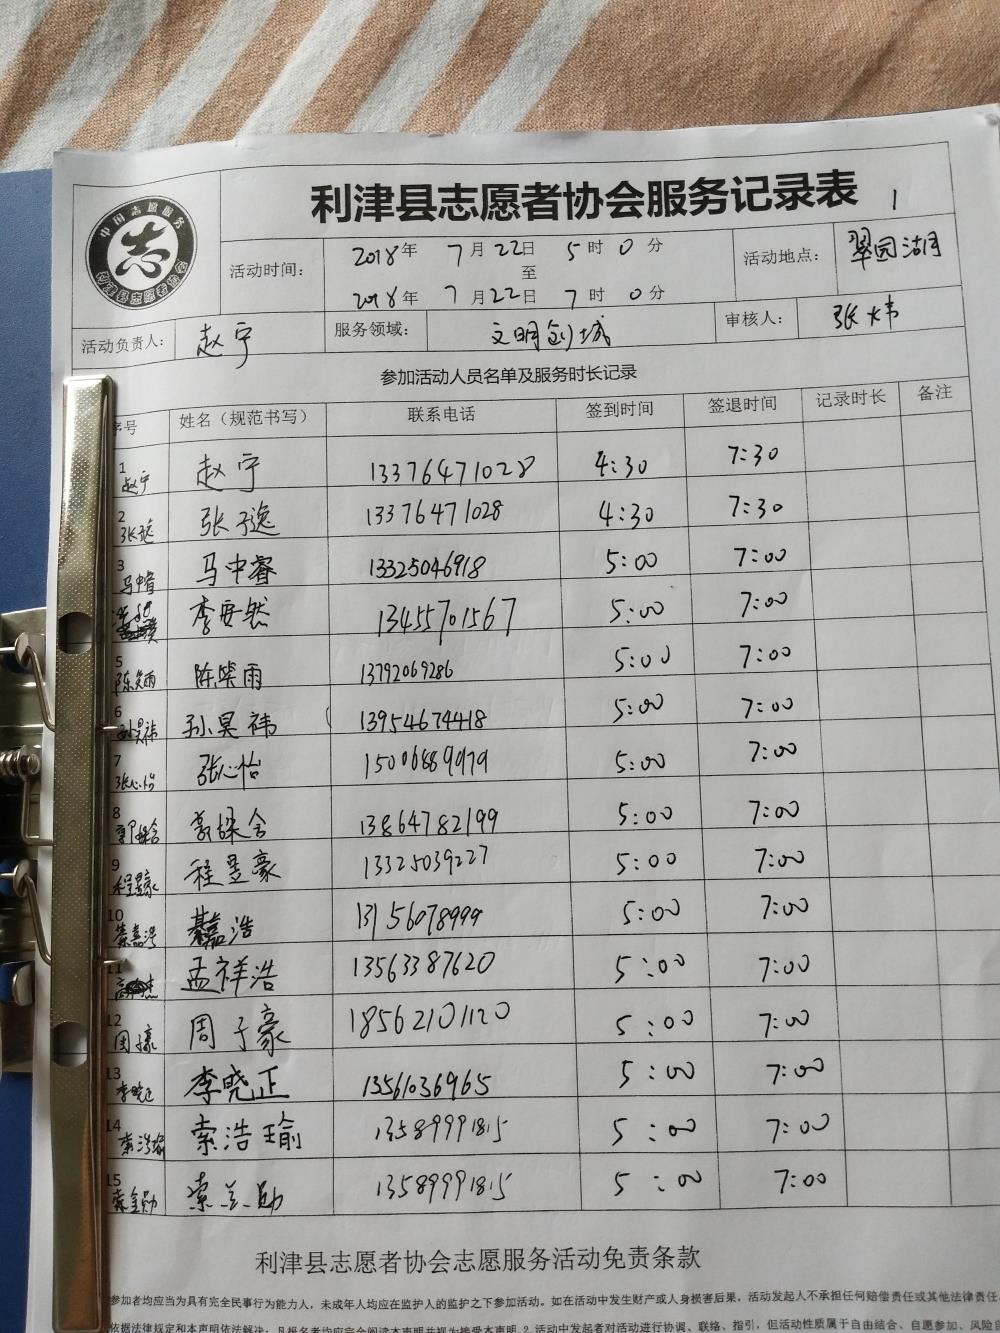 利津县志愿者协会服务记录表 1
中国志愿服务
志
利津县志愿者协会
活动时间： 2018年 7月22日 5时0分
至
2018年 7月22日 7时0分
活动地点： 翠园湖
活动负责人： 赵宁 服务领域： 文明创城 审核人： 张炜
参加活动人员名单及服务时长记录
序号 姓名（规范书写） 联系电话 签到时间 签退时间 记录时长 备注
1 赵宁 赵宁 13376471028 4:30 7:30
2 张子逸 张子逸 13376471028 4:30 7:30
3 马中睿 马中睿 13325046918 5:00 7:00
李安然 13455701567 5:00 7:00
5 陈笑雨 陈笑雨 13792069286 5:00 7:00
6 孙昊祎 孙昊祎 13954674418 5:00 7:00
7 张心怡 张心怡 15006889979 5:00 7:00
8 13864782199 5:00 7:00
9 程昱豪 程昱豪 13325039227 5:00 7:00
10 綦嘉浩 綦嘉浩 13156078999 5:00 7:00
11 孟祥浩 13563387620 5:00 7:00
12 周子豪 周子豪 18562101120 5:00 7:00
13 李晓正 李晓正 13561036965 5:00 7:00
14 索浩瑜 索浩瑜 13589991815 5:00 7:00
15 索金勋 索兰勋 13589991815 5:00 7:00
利津县志愿者协会志愿服务活动免责条款
参加者均应当为具有完全民事行为能力人，未成年人均应在监护人的监护之下参加活动。如在活动中发生财产或人身损害后果，活动发起人不承担任何赔偿责任或其他法律责任。
依据法律规定和本声明依法解决；凡报名者均应完全阅读本声明并视为接受本声明。2.活动中发起者对活动进行协调、联络、指引，但活动性质属于自由结合、自愿参加、风险自